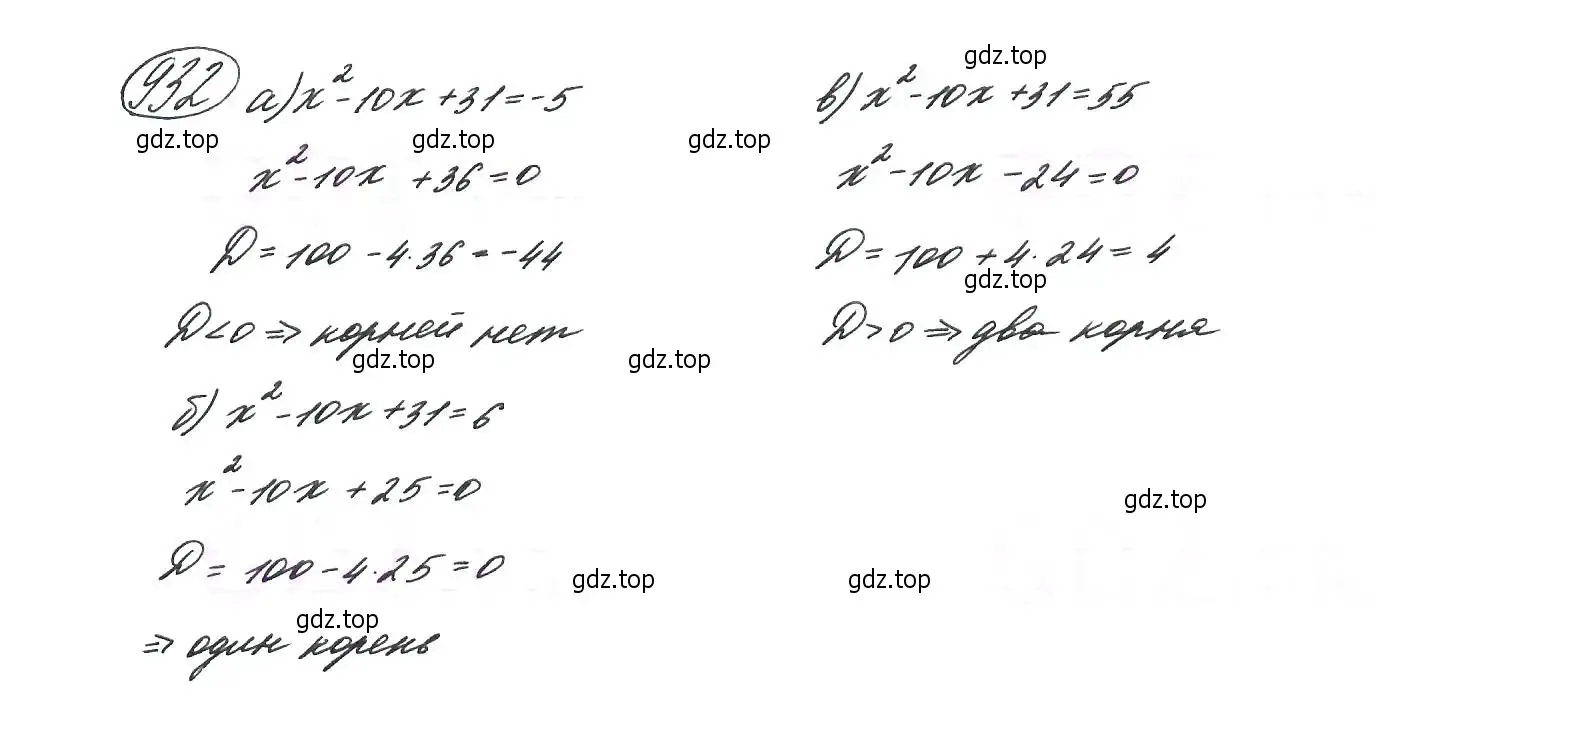 932 а) x²-10x+31=-5
x²-10x+36=0
D=100-4·36=-44
D<0 ⇒ корней нет
б) x²-10x+31=6
x²-10x+25=0
D=100-4·25=0
⇒ один корень
в) x²-10x+31=55
x²-10x-24=0
D=100+4·24=4
D>0 ⇒ два корня
gdz.top
gdz.top
gdz.top
gdz.top
gdz.top
gdz.top
gdz.top
gdz.top
gdz.top
gdz.top
gdz.top